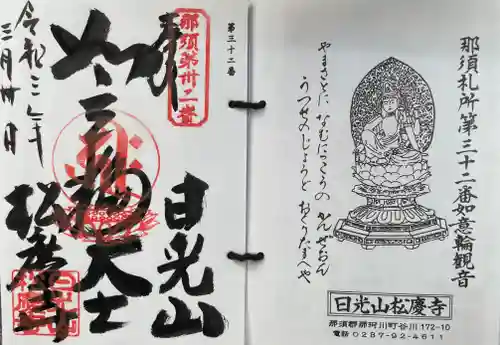 那須札所第三十二番如意輪観音
やまさとに なむにっこうの かんぜおん
うつせのじょうど おくりたまへや
日光山松慶寺
那須郡那珂川町谷川172-10
電話 0287-92-4611
第三十二番
那須第卅二番
奉
日光山
如意輪大士
松慶寺
令和三年
三月廿日